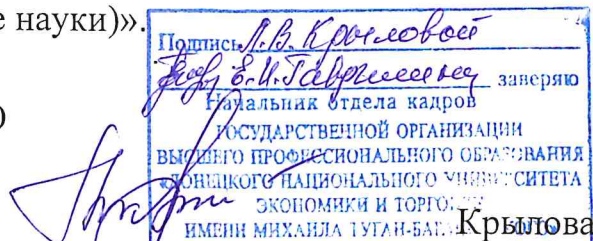 е науки)».
Подпись Л.В. Крыловой
заверяю
Начальник отдела кадров
ГОСУДАРСТВЕННОЙ ОРГАНИЗАЦИИ
ВЫСШЕГО ПРОФЕССИОНАЛЬНОГО ОБРАЗОВАНИЯ
«ДОНЕЦКОГО НАЦИОНАЛЬНОГО УНИВЕРСИТЕТА
ЭКОНОМИКИ И ТОРГОВЛИ
ИМЕНИ МИХАИЛА ТУГАН-БАРАНОВСКОГО»
Крылова